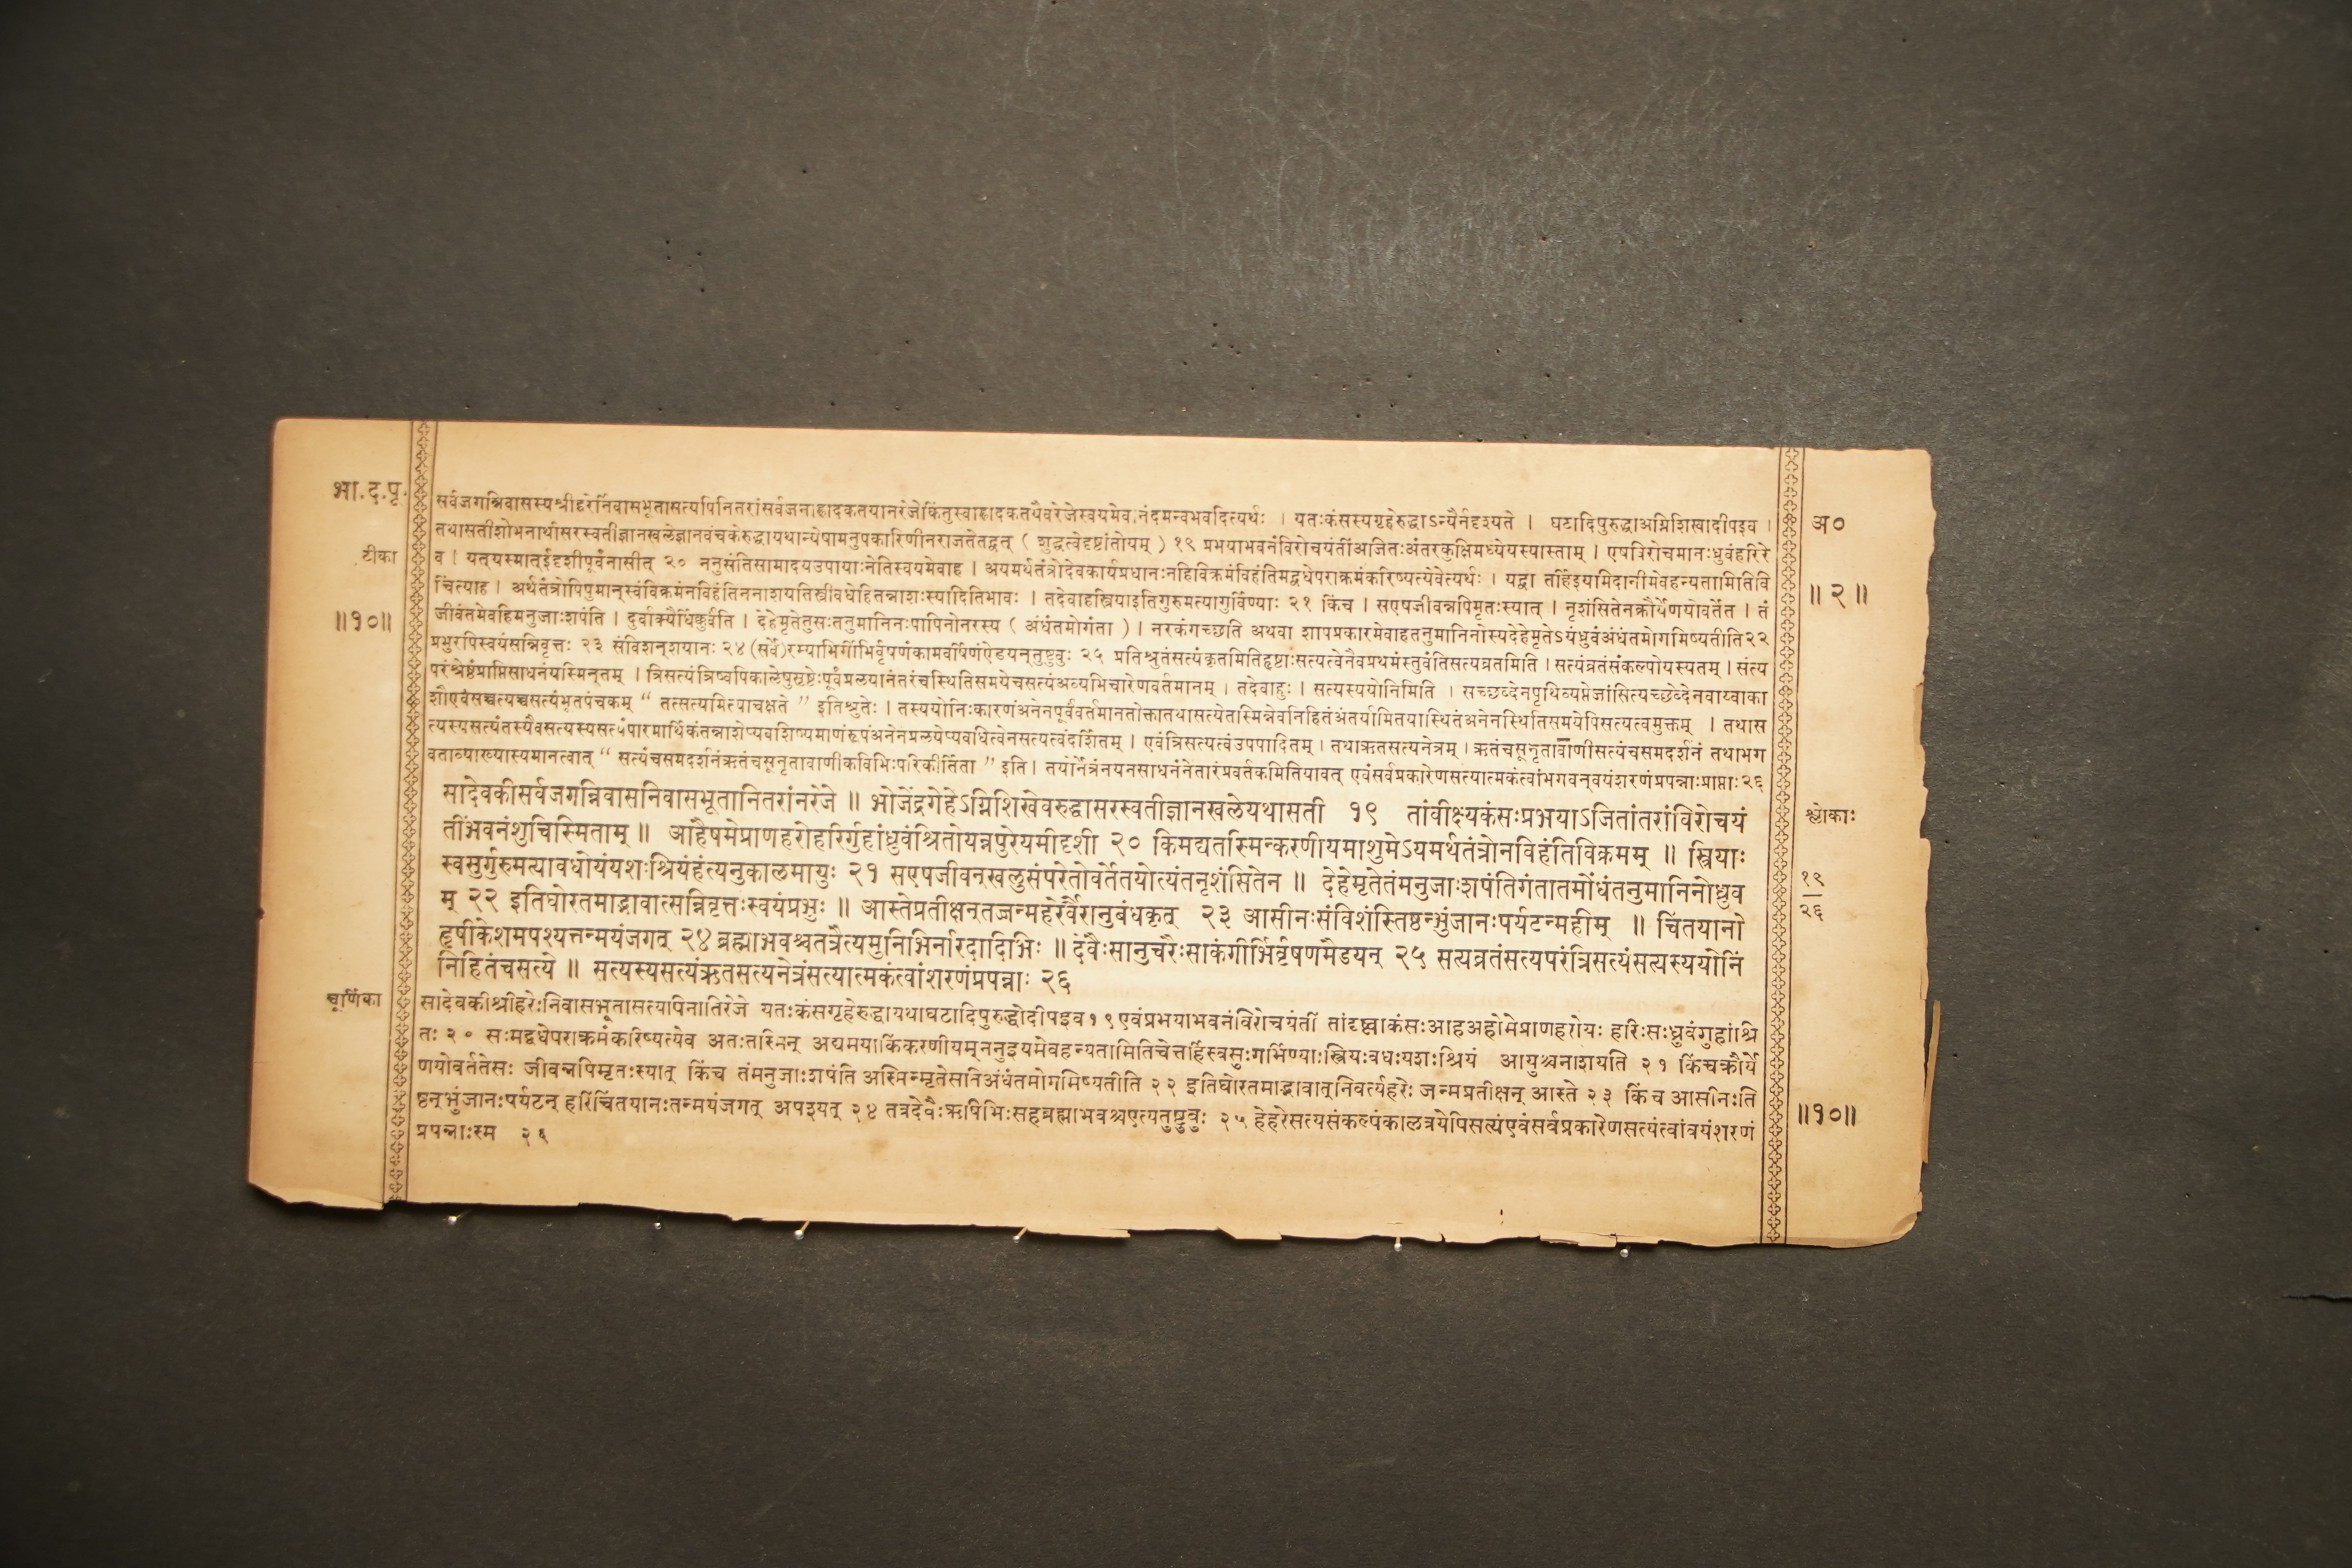 भा.द.पृ.
टीका
॥१०॥
अ०
॥२॥
सर्वजगन्निवासस्यश्रीहरेर्निवासभूतासत्यपिनितरांसर्वजनाह्लादकतयानरेजेकिंतुस्वाह्लादकतयैवरेजेस्वयमेवानंदमन्वभवदित्यर्थः । यतःकंसस्यगृहेरुद्धाऽन्यैर्नदृश्यते । घटादिपुरुद्धाअग्निशिखादीपइव ।
तथासतीशोभनार्थासरस्वतीज्ञानखलेज्ञानवंचकेरुद्धायथान्येषामनुपकारिणीनराजतेतद्वत् ( शुद्धत्वेदृष्टांतोयम् ) १९ प्रभयाभवनंविरोचयंतींअजितःअंतरकुक्षिमध्येयस्यास्ताम् । एषविरोचमानःध्रुवंहरिरे
व । यत्यस्मात्ईदृशीपूर्वंनासीत् २० ननुसंतिसामादयउपायाःनेतिस्वयमेवाह । अयमर्थतंत्रोदेवकार्यप्रधानःनहिविक्रमंविहंतिमद्वधेपराक्रमंकरिष्यत्येवेत्यर्थः । यद्वा तर्हिइयमिदानीमेवहन्यतामितिवि
चिंत्याह । अर्थतंत्रोपिपुमान्स्वंविक्रमंनविहंतिननाशयतिस्त्रीवधेहितन्नाशःस्यादितिभावः । तदेवाहस्त्रियाइतिगुरुमत्यागुर्विण्याः २१ किंच । सएषजीवन्नपिमृतःस्यात् । नृशंसितेनक्रौर्येणयोवर्तेत । तं
जीवंतमेवहिमनुजाःशपंति । दुर्वाक्यैर्धिक्कुर्वंति । देहेमृतेतुसःतनुमानिनःपापिनोनरस्य ( अंधंतमोगंता ) । नरकंगच्छति अथवा शापप्रकारमेवाहतनुमानिनोस्यदेहेमृतेऽयंध्रुवंअंधंतमोगमिष्यतीति२२
प्रभुरपिस्वयंसन्निवृत्तः २३ संविशन्शयानः २४ (सर्वे)रम्याभिर्गीर्भिर्वृषणंकामवर्षिणंऐडयन्तुष्टुवुः २५ प्रतिश्रुतंसत्यंकृतमितिहृष्टाःसत्यत्वेनैवप्रथमंस्तुवंतिसत्यव्रतमिति । सत्यंव्रतंसंकल्पोयस्यतम् । सत्यं
परंश्रेष्ठंप्राप्तिसाधनंयस्मिन्तम् । त्रिसत्यंत्रिष्वपिकालेषुसृष्टेःपूर्वंप्रलयानंतरंचस्थितिसमयेचसत्यंअव्यभिचारेणवर्तमानम् । तदेवाहुः । सत्यस्ययोनिमिति । सच्छब्देनपृथिव्यप्तेजांसित्यच्छब्देनवाय्वाका
शौएवंसच्चत्यच्चसत्यंभूतपंचकम् “ तत्सत्यमित्याचक्षते ” इतिश्रुतेः । तस्ययोनिःकारणंअनेनपूर्ववर्तमानतोक्तातथासत्येतास्मिन्नेवनिहितंअंतर्यामितयास्थितंअनेनस्थितिसमयेपिसत्यत्वमुक्तम् । तथास
त्यस्यसत्यंतस्यैवसत्यस्यसत्यंपारमार्थिकंतन्नाशेप्यवशिष्यमाणंरूपंअनेनप्रलयेप्यवधित्वेनसत्यत्वंदर्शितम् । एवंत्रिसत्यत्वंउपपादितम् । तथाऋतसत्यनेत्रम् । ऋतंचसूनृतावाणीसत्यंचसमदर्शनं तथाभग
वताव्याख्यास्यमानत्वात् “ सत्यंचसमदर्शनंऋतंचसूनृतावाणीकविभिःपरिकीर्तिता ” इति । तयोर्नेत्रंनयनसाधनंनेतारंप्रवर्तकमितियावत् एवंसर्वप्रकारेणसत्यात्मकंत्वांभगवन्वयंशरणंप्रपन्नाःप्राप्ताः२६
सादेवकीसर्वजगन्निवासनिवासभूतानितरांनरेजे ॥ भोजेंद्रगेहेऽग्निशिखेवरुद्धासरस्वतीज्ञानखलेयथासती १९ तांवीक्ष्यकंसःप्रभयाऽजितांतरांविरोचयं
तींभवनंशुचिस्मिताम् ॥ आहैषमेप्राणहरोहरिर्गुहांध्रुवंश्रितोयन्नपुरेयमीदृशी २० किमद्यतस्मिन्करणीयमाशुमेऽयमर्थतंत्रोनविहंतिविक्रमम् ॥ स्त्रियाः
स्वसुर्गुरुमत्यावधोयंयशःश्रियंहंत्यनुकालमायुः २१ सएषजीवन्खलुसंपरेतोवर्तेतयोत्यंतनृशंसितेन ॥ देहेमृतेतंमनुजाःशपंतिगंतातमोंधंतनुमानिनोध्रुव
म् २२ इतिघोरतमाद्भावात्सन्निवृत्तःस्वयंप्रभुः ॥ आस्तेप्रतीक्षन्तज्जन्महरेर्वैरानुबंधकृत् २३ आसीनःसंविशंस्तिष्ठन्भुंजानःपर्यटन्महीम् ॥ चिंतयानो
हृषीकेशमपश्यत्तन्मयंजगत् २४ ब्रह्माभवश्चतत्रैत्यमुनिभिर्नारदादिभिः ॥ देवैःसानुचरैःसाकंगीर्भिर्वृषणमैडयन् २५ सत्यव्रतंसत्यपरंत्रिसत्यंसत्यस्ययोनिं
निहितंचसत्ये ॥ सत्यस्यसत्यंऋतसत्यनेत्रंसत्यात्मकंत्वांशरणंप्रपन्नाः २६
श्लोकाः
१९
२६
चूर्णिका
सादेवकीश्रीहरेःनिवासभूतासत्यापिनातिरेजे यतःकंसगृहेरुद्धायथाघटादिपुरुद्धोदीपइव१९एवंप्रभयाभवनंविरोचयंतीं तांदृष्ट्वाकंसःआहअहोमेप्राणहरोयः हरिःसःध्रुवंगुहांश्रि
तः २० सःमद्वधेपराक्रमंकरिष्यत्येव अतःतस्मिन् अद्यमयाकिंकरणीयम्ननुइयमेवहन्यतामितिचेत्तर्हिस्वसुःगर्भिण्याःस्त्रियःवधःयशःश्रियं आयुश्चनाशयति २१ किंचक्रौर्ये
णयोवर्ततेसः जीवन्नपिमृतःस्यात् किंच तंमनुजाःशपंति अस्मिन्मृतेसतिअंधंतमोगमिष्यतीति २२ इतिघोरतमाद्भावात्निवर्त्यहरेः जन्मप्रतीक्षन् आस्ते २३ किंच आसीनःति
ष्ठन्भुंजानःपर्यटन् हरिंचिंतयानःतन्मयंजगत् अपश्यत् २४ तत्रदेवैःऋषिभिःसहब्रह्माभवश्चएत्यतुष्टुवुः २५ हेहरेसत्यसंकल्पंकालत्रयेपिसत्यंएवंसर्वप्रकारेणसत्यंत्वांवयंशरणं
प्रपन्नाःस्म २६
॥१०॥